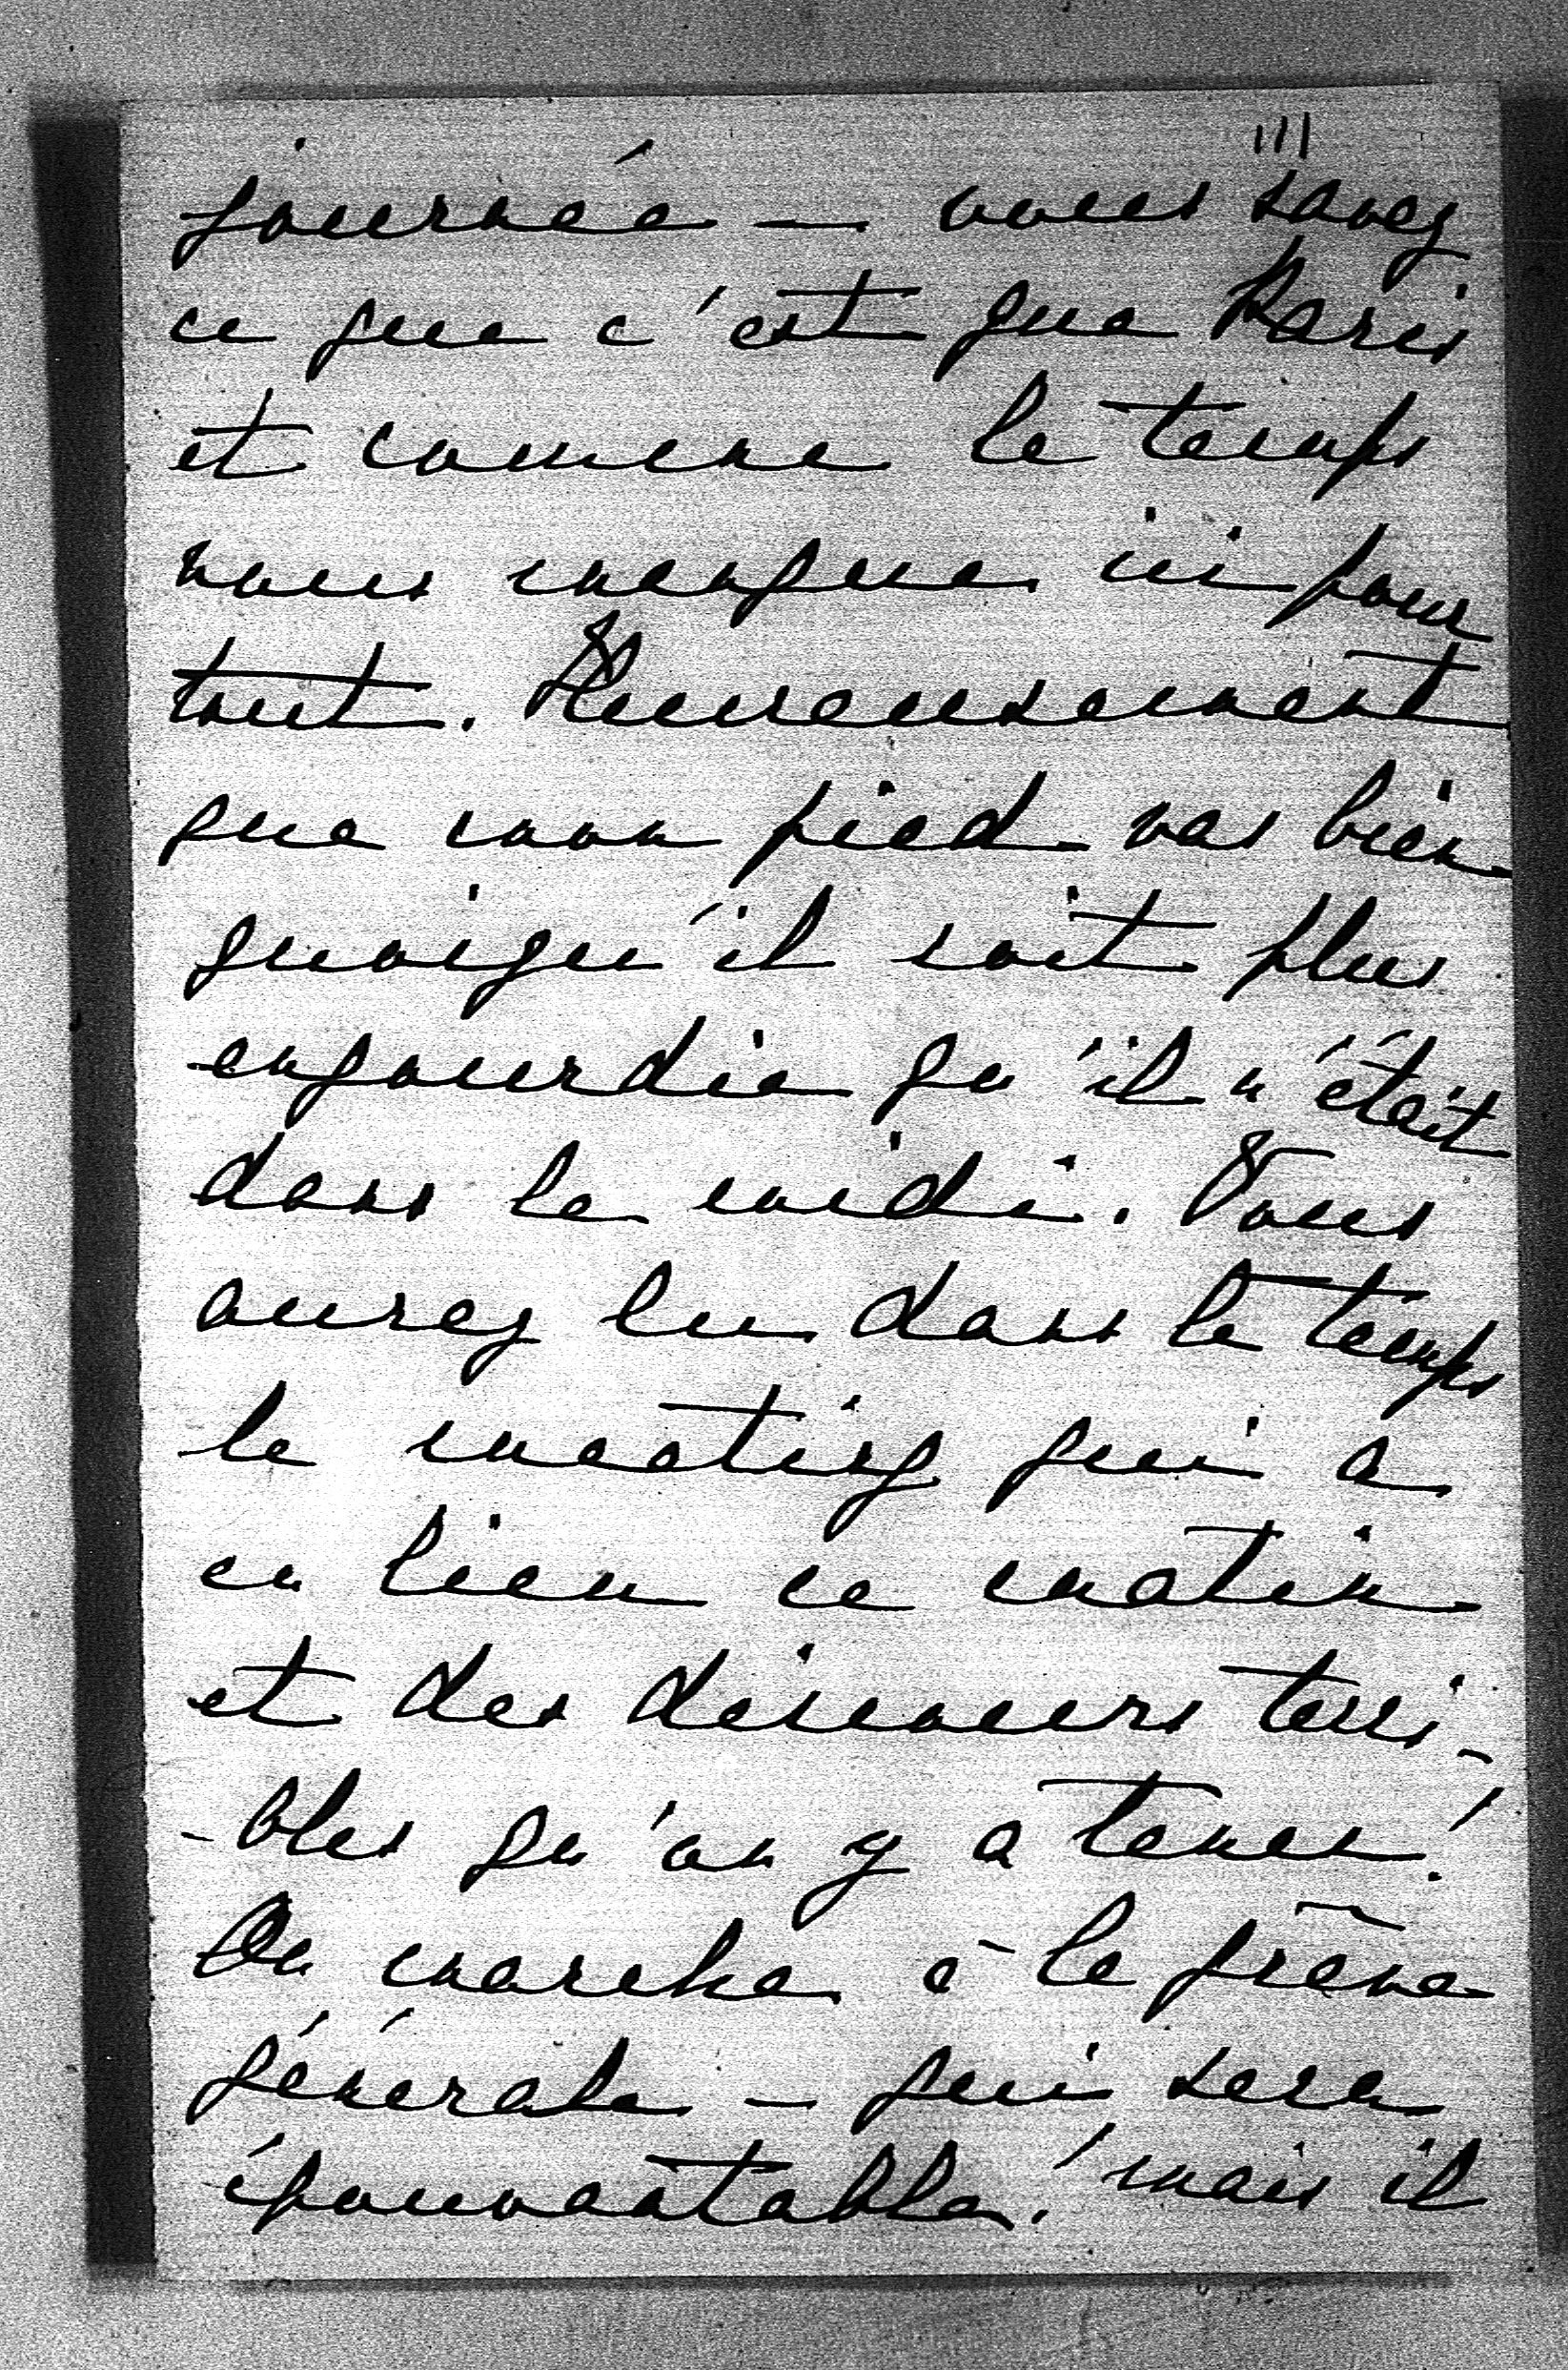 III
journée — vous savez
ce que c'est que Paris
et comme le temps
nous manque ici pour
tout. Heureusement
que mon pied va bien
quoiqu'il soit plus
engourdie qu'il n'était
dans le midi. Vous
aurez lu dans le temps
le meeting qui a
eu lieu ce matin
et des discours terri-
-bles qu'on y a tenus!
On marche à la grève
générale — qui sera
épouvantable! mais il